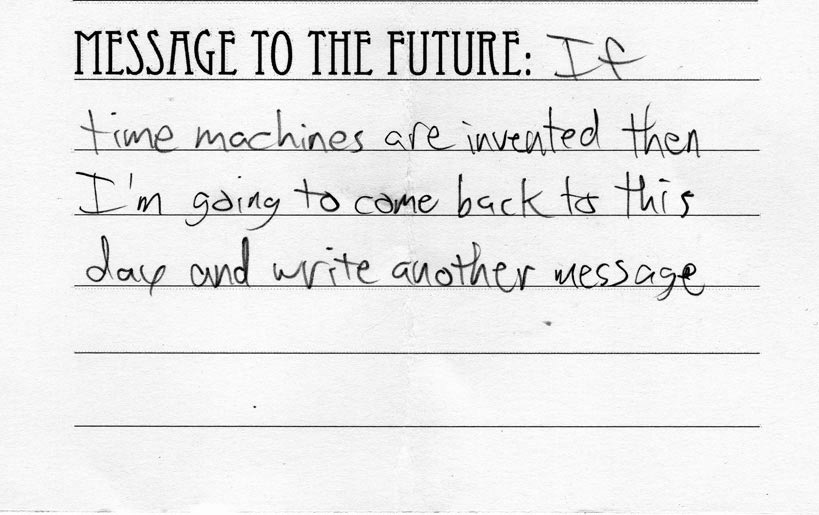 MESSAGE TO THE FUTURE: If
time machines are invented then
I'm going to come back to this
day and write another message